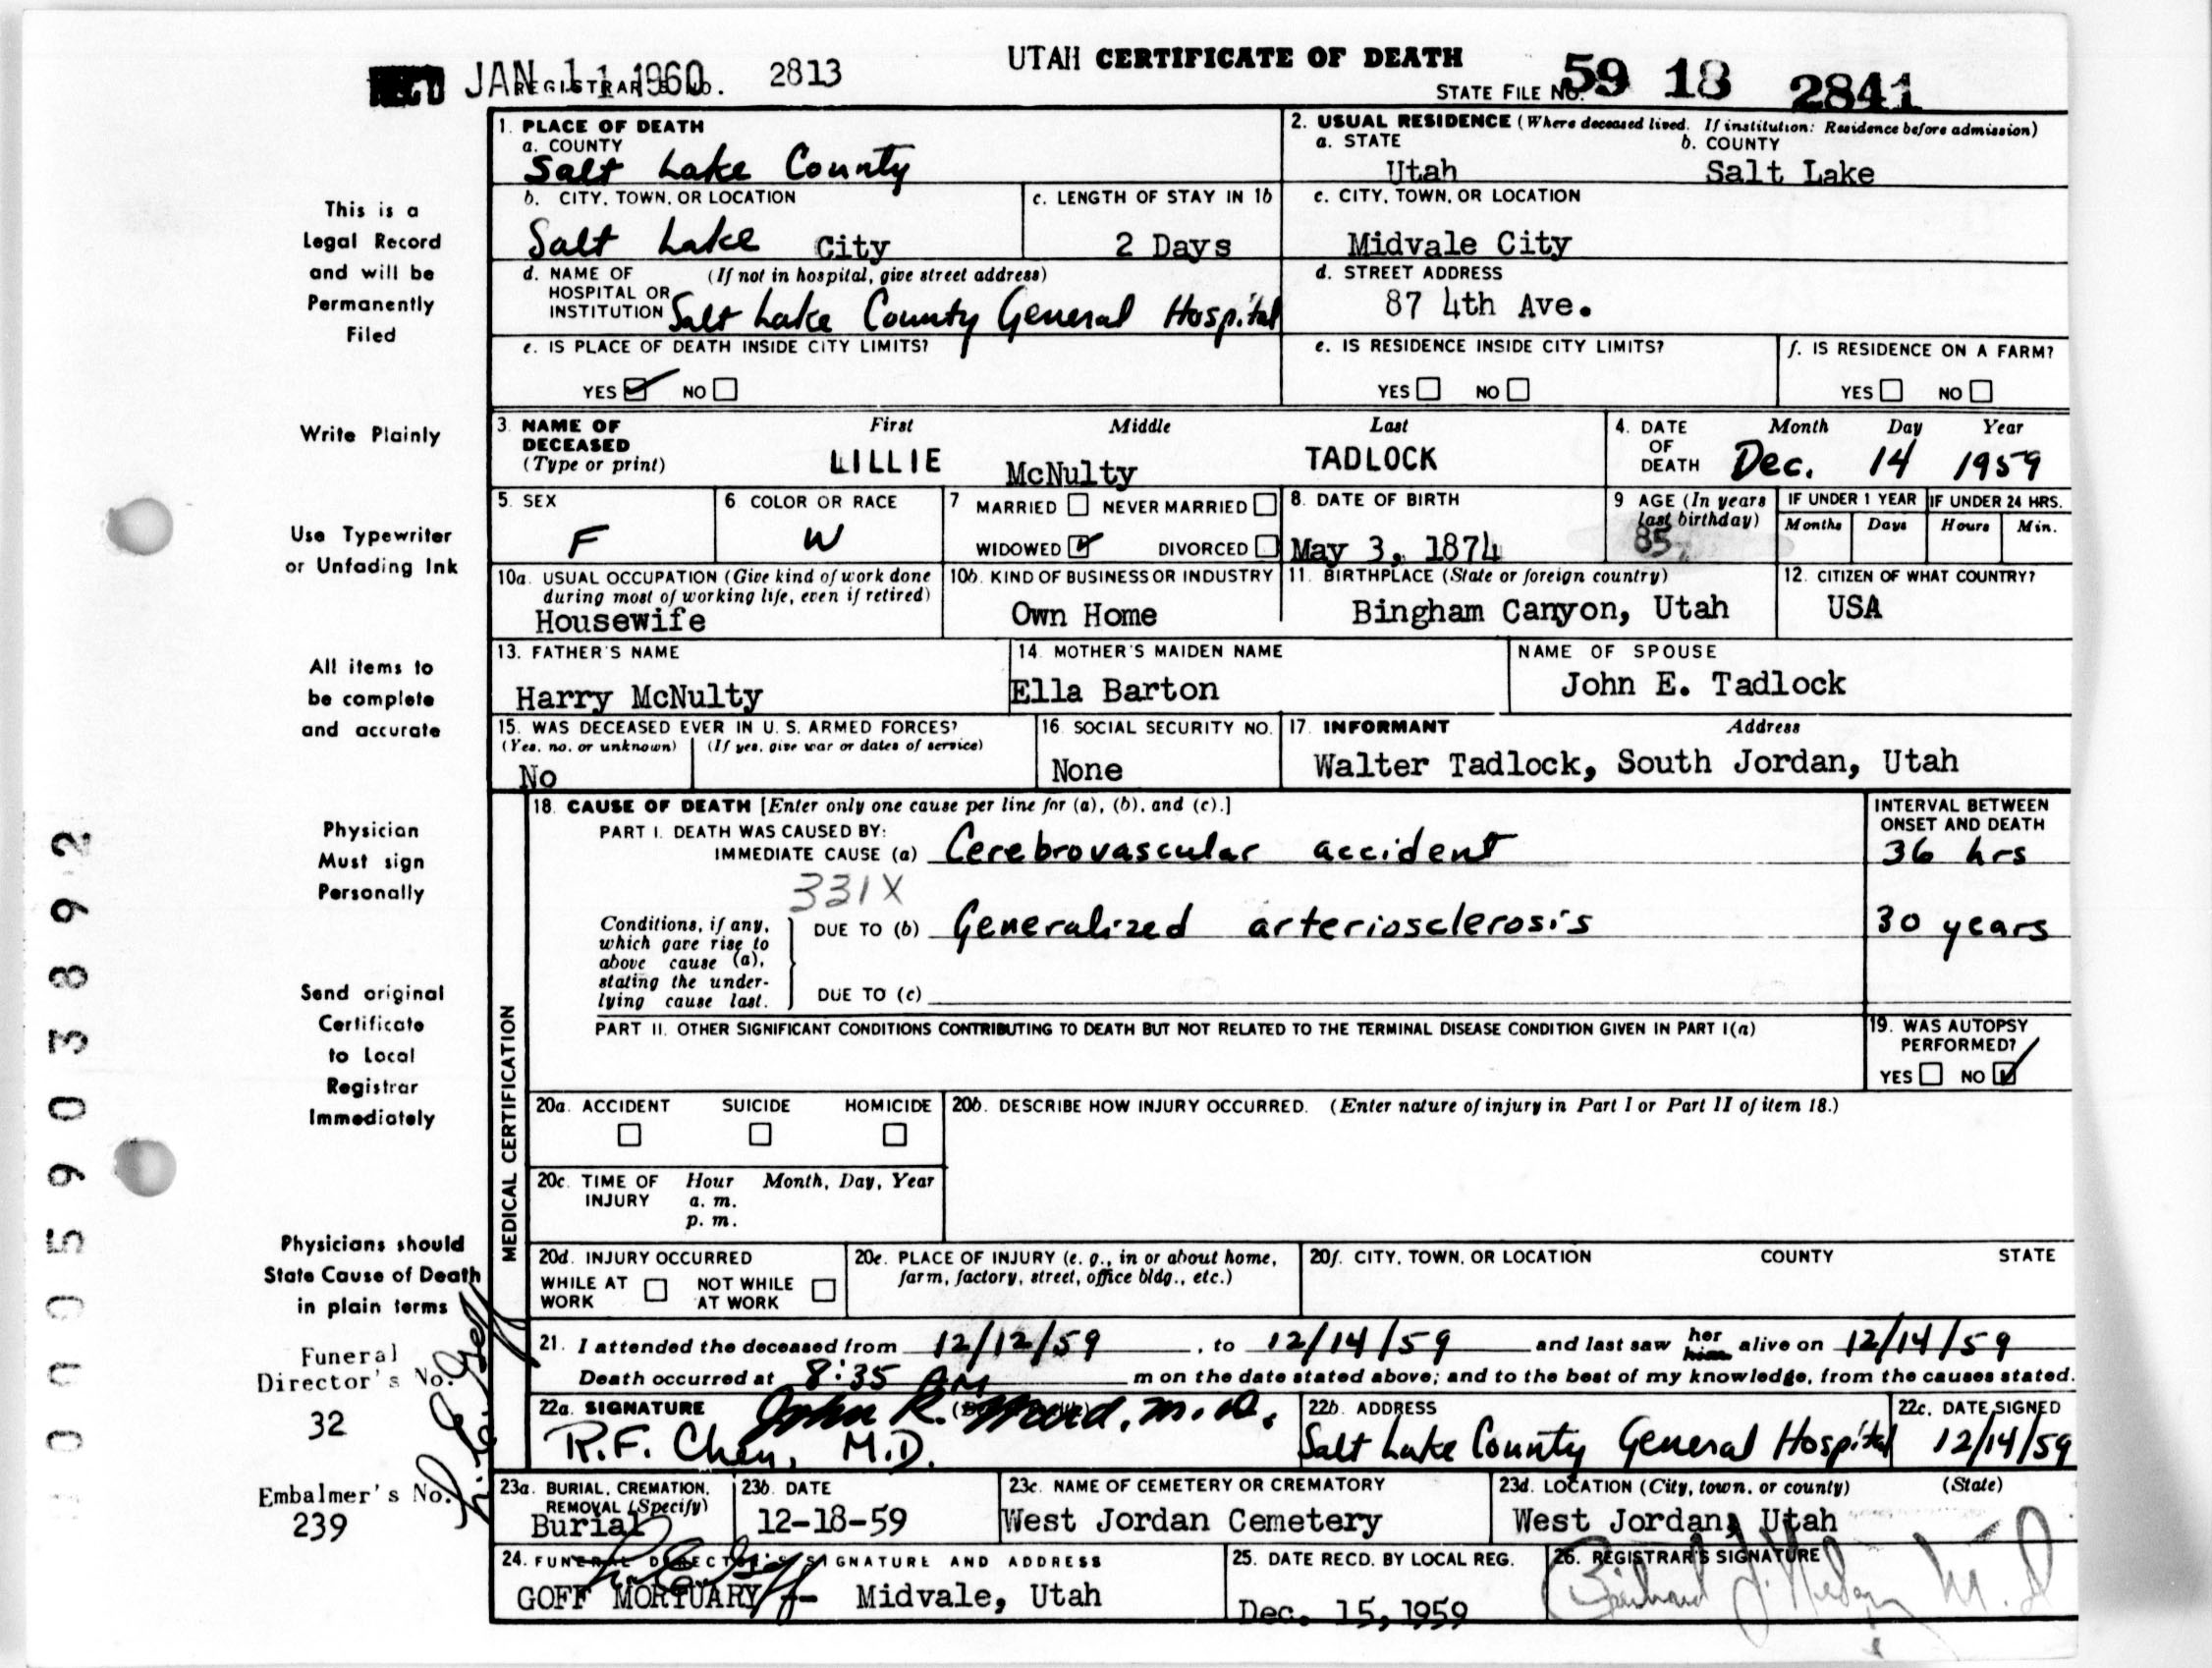 UTAH CERTIFICATE OF DEATH
REC'D JAN 11 1960 REGISTRAR'S No. 2813
STATE FILE No. 59 18 2841
1. PLACE OF DEATH
a. COUNTY
Salt Lake County
2. USUAL RESIDENCE (Where deceased lived. If institution: Residence before admission)
a. STATE b. COUNTY
Utah Salt Lake
b. CITY, TOWN, OR LOCATION c. LENGTH OF STAY IN 1b c. CITY, TOWN, OR LOCATION
Salt Lake City 2 Days Midvale City
d. NAME OF (If not in hospital, give street address)
HOSPITAL OR
INSTITUTION Salt Lake County General Hospital
d. STREET ADDRESS
87 4th Ave.
e. IS PLACE OF DEATH INSIDE CITY LIMITS? e. IS RESIDENCE INSIDE CITY LIMITS? f. IS RESIDENCE ON A FARM?
YES NO YES NO YES NO
3. NAME OF DECEASED (Type or print) First Middle Last
LILLIE McNulty TADLOCK
4. DATE OF DEATH Month Day Year
Dec. 14 1959
5. SEX 6. COLOR OR RACE 7 MARRIED NEVER MARRIED 8. DATE OF BIRTH 9 AGE (In years last birthday) IF UNDER 1 YEAR IF UNDER 24 HRS.
Months Days Hours Min.
F W WIDOWED DIVORCED May 3, 1874 85
10a. USUAL OCCUPATION (Give kind of work done during most of working life, even if retired) 10b. KIND OF BUSINESS OR INDUSTRY 11. BIRTHPLACE (State or foreign country) 12. CITIZEN OF WHAT COUNTRY?
Housewife Own Home Bingham Canyon, Utah USA
13. FATHER'S NAME 14. MOTHER'S MAIDEN NAME NAME OF SPOUSE
Harry McNulty Ella Barton John E. Tadlock
15. WAS DECEASED EVER IN U. S. ARMED FORCES? 16. SOCIAL SECURITY NO. 17. INFORMANT Address
(Yes, no, or unknown) (If yes, give war or dates of service)
No None Walter Tadlock, South Jordan, Utah
MEDICAL CERTIFICATION
18. CAUSE OF DEATH [Enter only one cause per line for (a), (b), and (c).] INTERVAL BETWEEN ONSET AND DEATH
PART I. DEATH WAS CAUSED BY:
IMMEDIATE CAUSE (a) Cerebrovascular accident 36 hrs
331X
Conditions, if any, which gave rise to above cause (a), stating the underlying cause last.
DUE TO (b) Generalized arteriosclerosis 30 years
DUE TO (c)
PART II. OTHER SIGNIFICANT CONDITIONS CONTRIBUTING TO DEATH BUT NOT RELATED TO THE TERMINAL DISEASE CONDITION GIVEN IN PART I(a)
19. WAS AUTOPSY PERFORMED?
YES NO
20a. ACCIDENT SUICIDE HOMICIDE 20b. DESCRIBE HOW INJURY OCCURRED. (Enter nature of injury in Part I or Part II of item 18.)
20c. TIME OF INJURY Hour Month, Day, Year
a. m.
p. m.
20d. INJURY OCCURRED 20e. PLACE OF INJURY (e. g., in or about home, farm, factory, street, office bldg., etc.) 20f. CITY, TOWN, OR LOCATION COUNTY STATE
WHILE AT WORK NOT WHILE AT WORK
21. I attended the deceased from 12/12/59, to 12/14/59 and last saw her him alive on 12/14/59
Death occurred at 8:35 AM m on the date stated above; and to the best of my knowledge, from the causes stated.
22a. SIGNATURE John R. M.D. 22b. ADDRESS 22c. DATE SIGNED
R.F. Chen, M.D. Salt Lake County General Hospital 12/14/59
23a. BURIAL, CREMATION, REMOVAL (Specify) 23b. DATE 23c. NAME OF CEMETERY OR CREMATORY 23d. LOCATION (City, town, or county) (State)
Burial 12-18-59 West Jordan Cemetery West Jordan, Utah
24. FUNERAL DIRECTOR'S SIGNATURE AND ADDRESS 25. DATE RECD. BY LOCAL REG. 26. REGISTRAR'S SIGNATURE
GOFF MORTUARY - Midvale, Utah Dec. 15, 1959
This is a
Legal Record
and will be
Permanently
Filed
Write Plainly
Use Typewriter
or Unfading Ink
All items to
be complete
and accurate
Physician
Must sign
Personally
Send original
Certificate
to Local
Registrar
Immediately
Physicians should
State Cause of Death
in plain terms
Funeral
Director's No.
32
Embalmer's No.
239